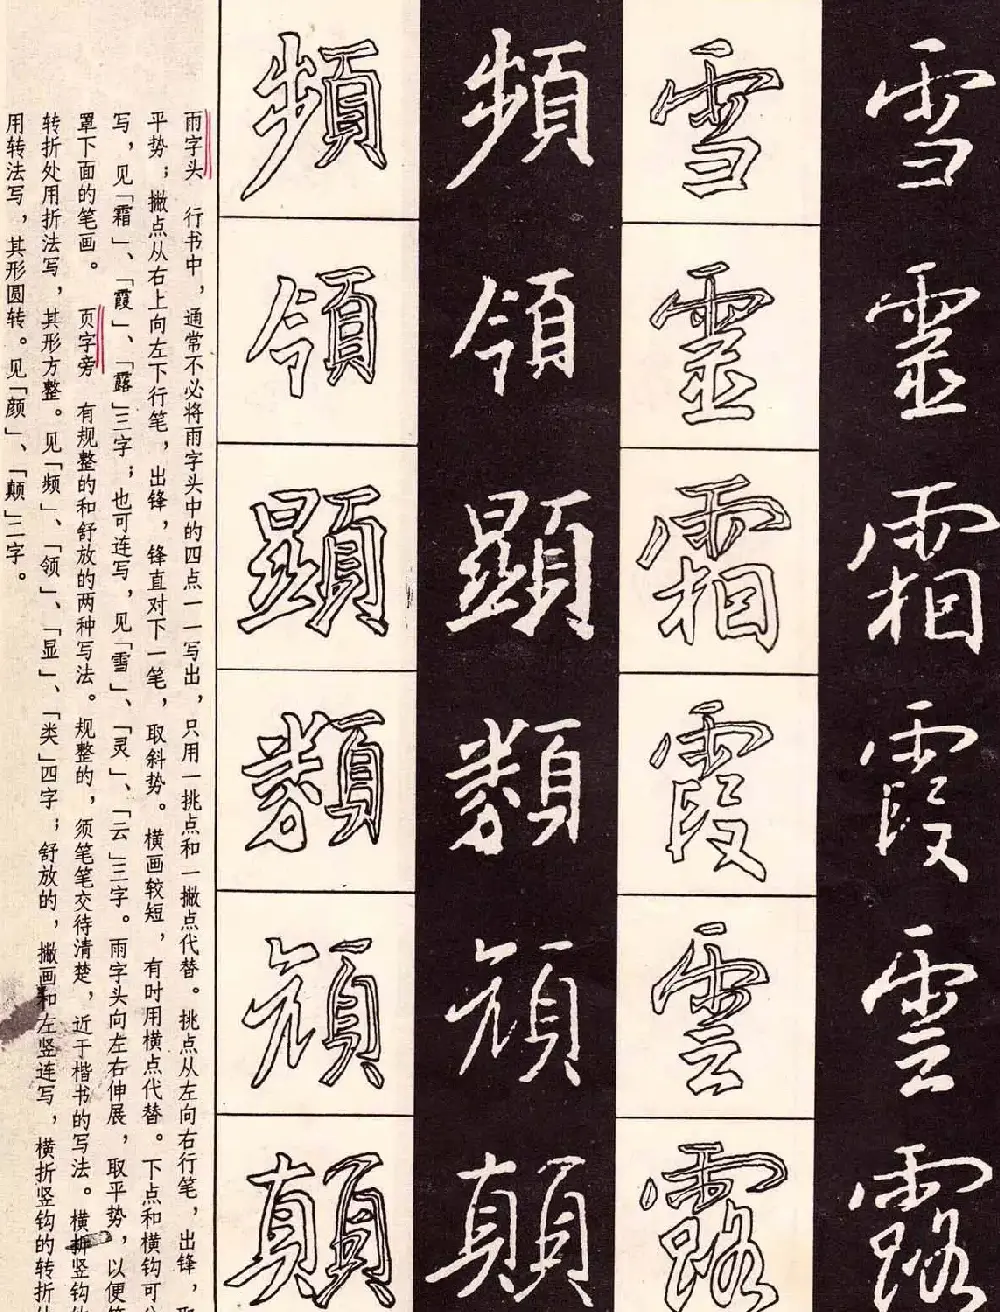 雪靈霜霞雲露
雪靈霜霞雲露
頻領顯類顔顛
頻領顯類顔顛
雨字头 行书中，通常不必将雨字头中的四点一一写出，只用一挑点和一撇点代替。挑点从左向右行笔，出锋，
平势；撇点从右上向左下行笔，出锋，锋直对下一笔，取斜势。横画较短，有时用横点代替。下点和横钩可
写，见「霜」、「霞」、「露」三字；也可连写，见「雪」、「灵」、「云」三字。雨字头向左右伸展，取平势，以便
罩下面的笔画。 页字旁 有规整的和舒放的两种写法。规整的，须笔笔交待清楚，近于楷书的写法。横折竖钩
转折处用折法写，其形方整。见「频」、「领」、「显」、「类」四字；舒放的，撇画和左竖连写，横折竖钩的转折
用转法写，其形圆转。见「颜」、「颠」二字。